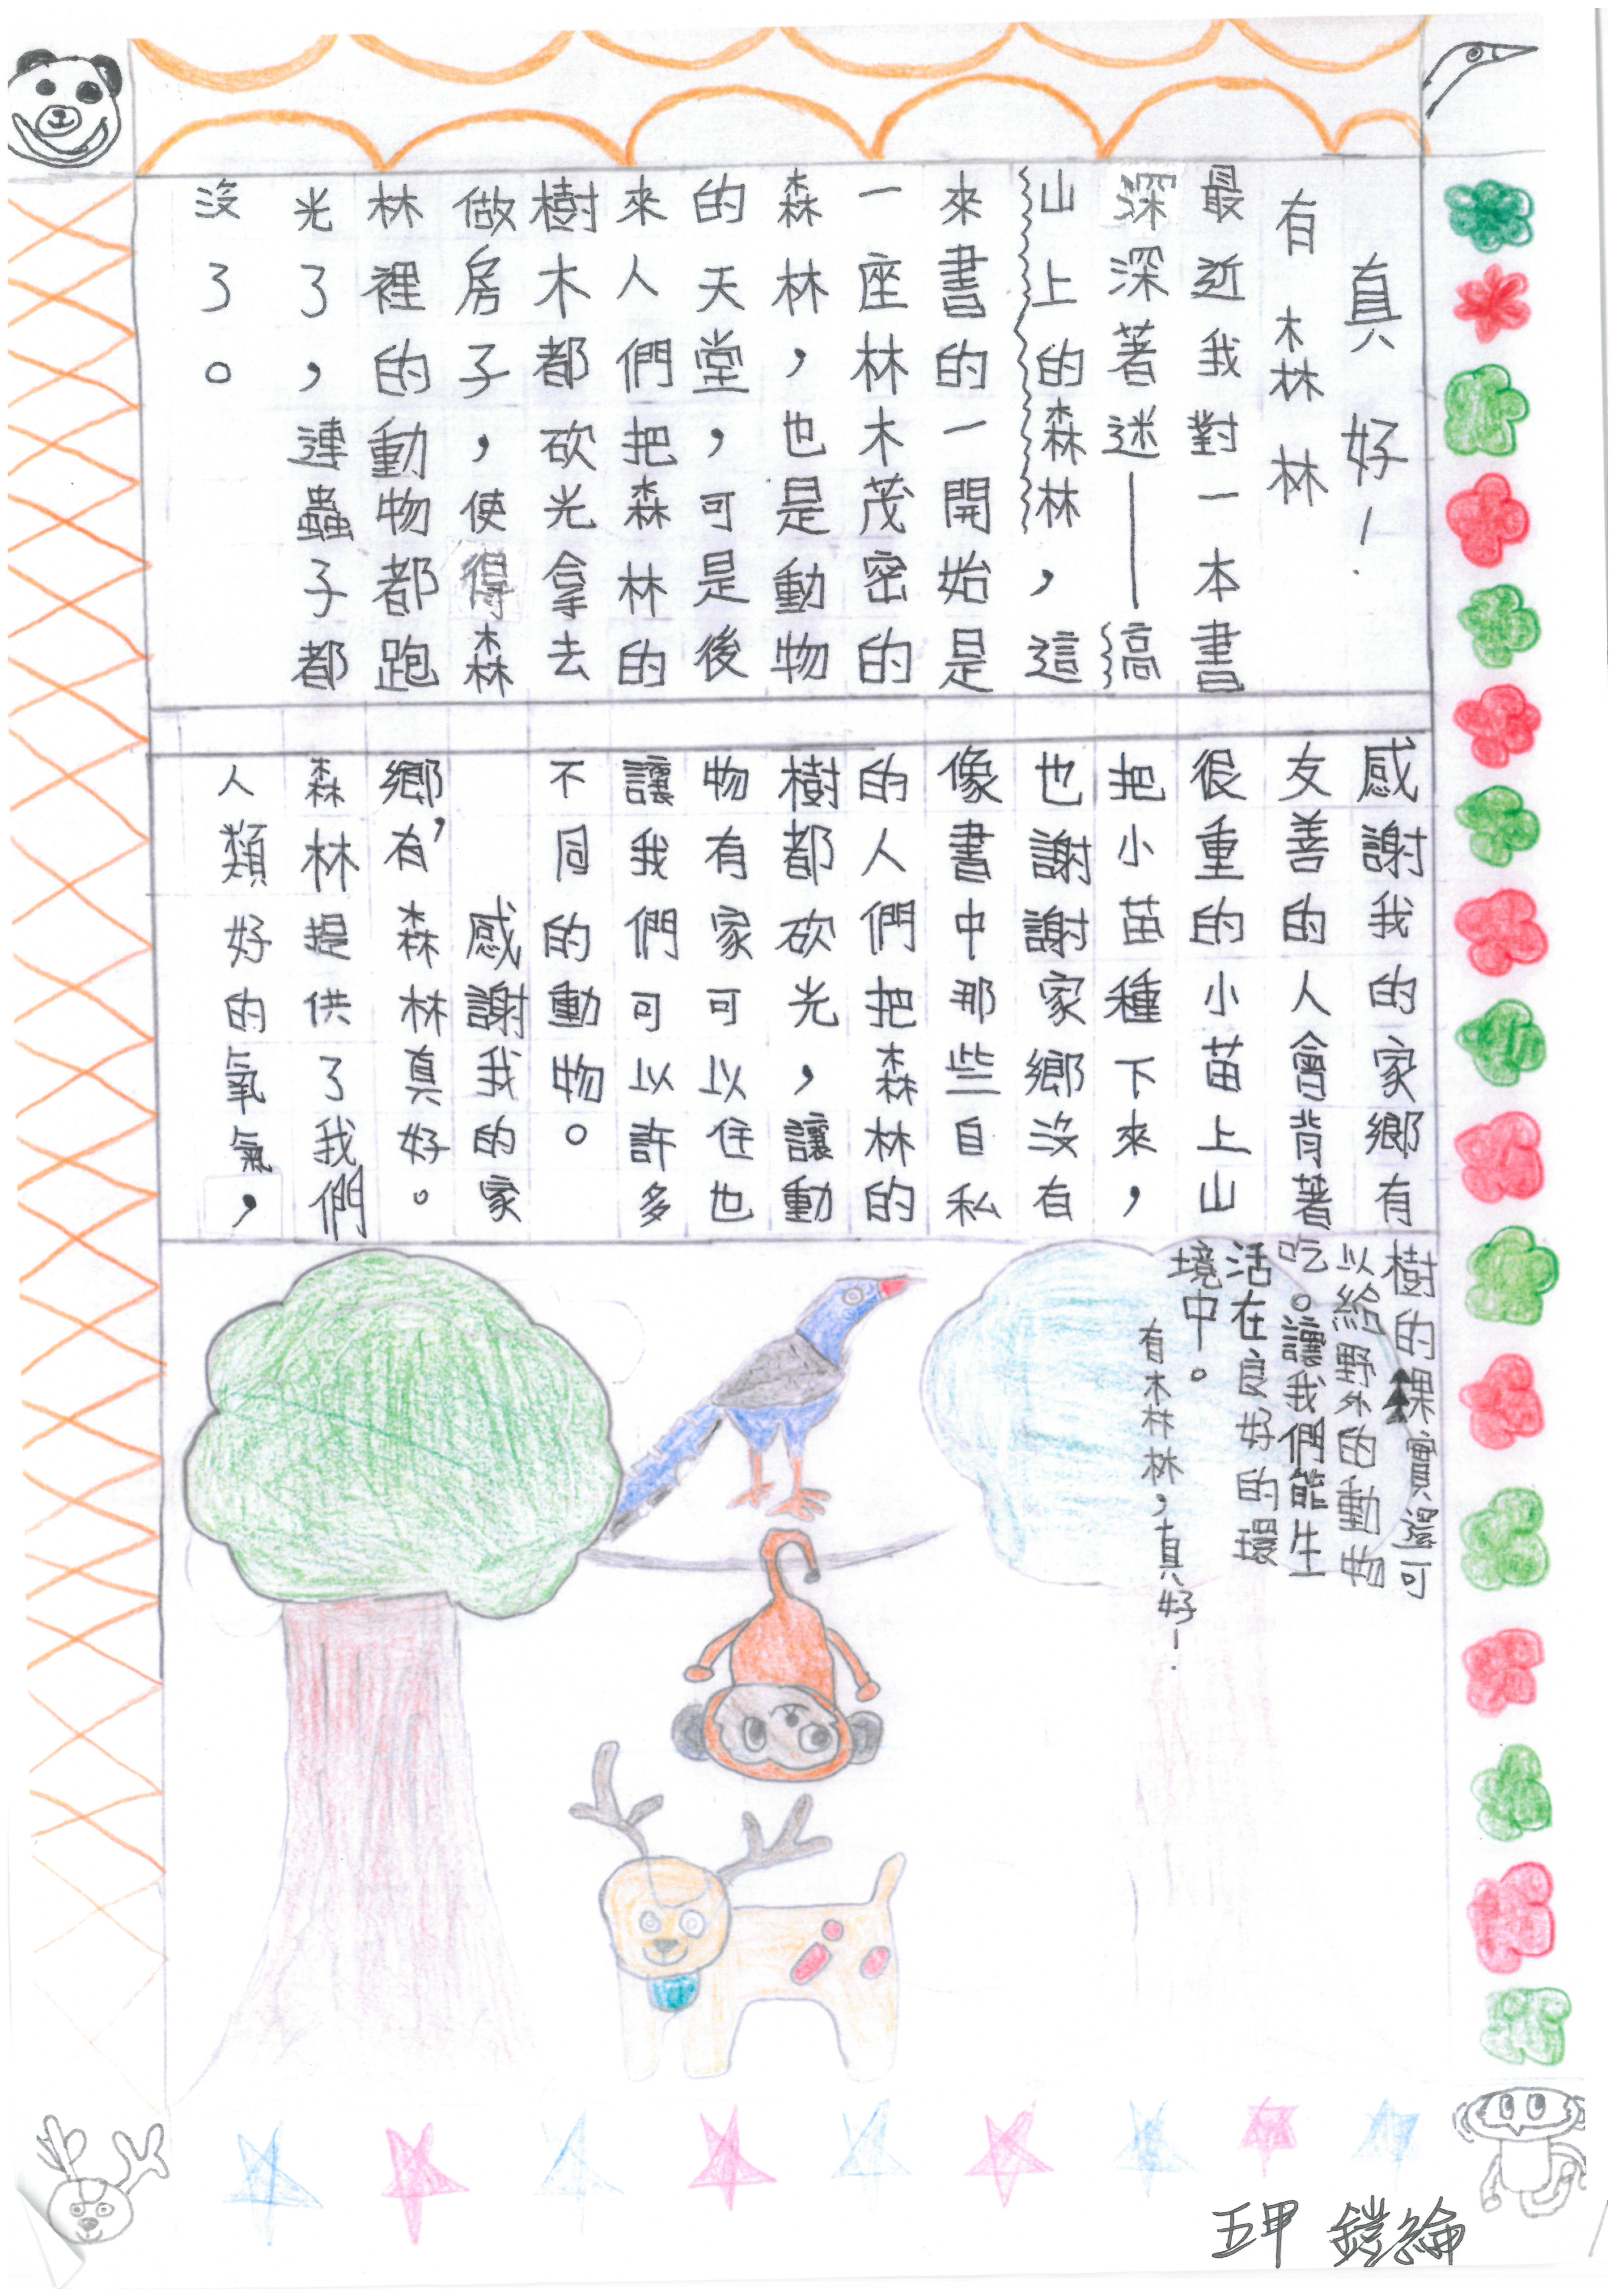 真好!
有森林
最近我對一本書
深深著迷——
山上的森林,這
來書的一開始是
一座林木茂密的
森林,也是動物
的天堂,可是後
來人們把森林的
樹木都砍光拿去
做房子,使得森
林裡的動物都跑
光了,連蟲子都
沒了。
感謝我的家鄉有
友善的人會背著
很重的小苗上山
把小苗種下來,
也謝謝家鄉沒有
像書中那些自私
的人們把森林的
樹都砍光,讓動
物有家可以住也
讓我們可以許多
不同的動物。
感謝我的家
鄉,有森林真好。
森林提供了我們
人類好的氧氣,
樹的果實還可
以給野外的動物
吃。讓我們能生
活在良好的環
境中。
有森林,真好!
五甲 鎧綸